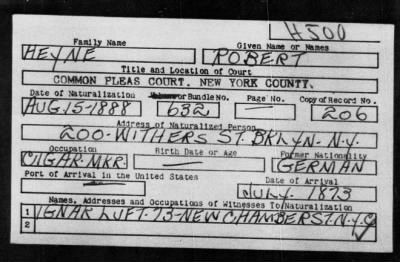 H500
Family Name Given Name or Names
HEYNE ROBERT
Title and Location of Court
COMMON PLEAS COURT. NEW YORK COUNTY.
Date of Naturalization Volume or Bundle No. Page No. Copy of Record No.
AUG.15-1888 632 206
Address of Naturalized Person
200-WITHERS ST. BKLYN-N.Y.
Occupation Birth Date or Age Former Nationality
CIGAR-MKR. GERMAN
Port of Arrival in the United States Date of Arrival
JULY. 1873
Names, Addresses and Occupations of Witnesses To Naturalization
1 IGNAR LUFT-73-NEW CHAMBER ST. N.Y.C
2